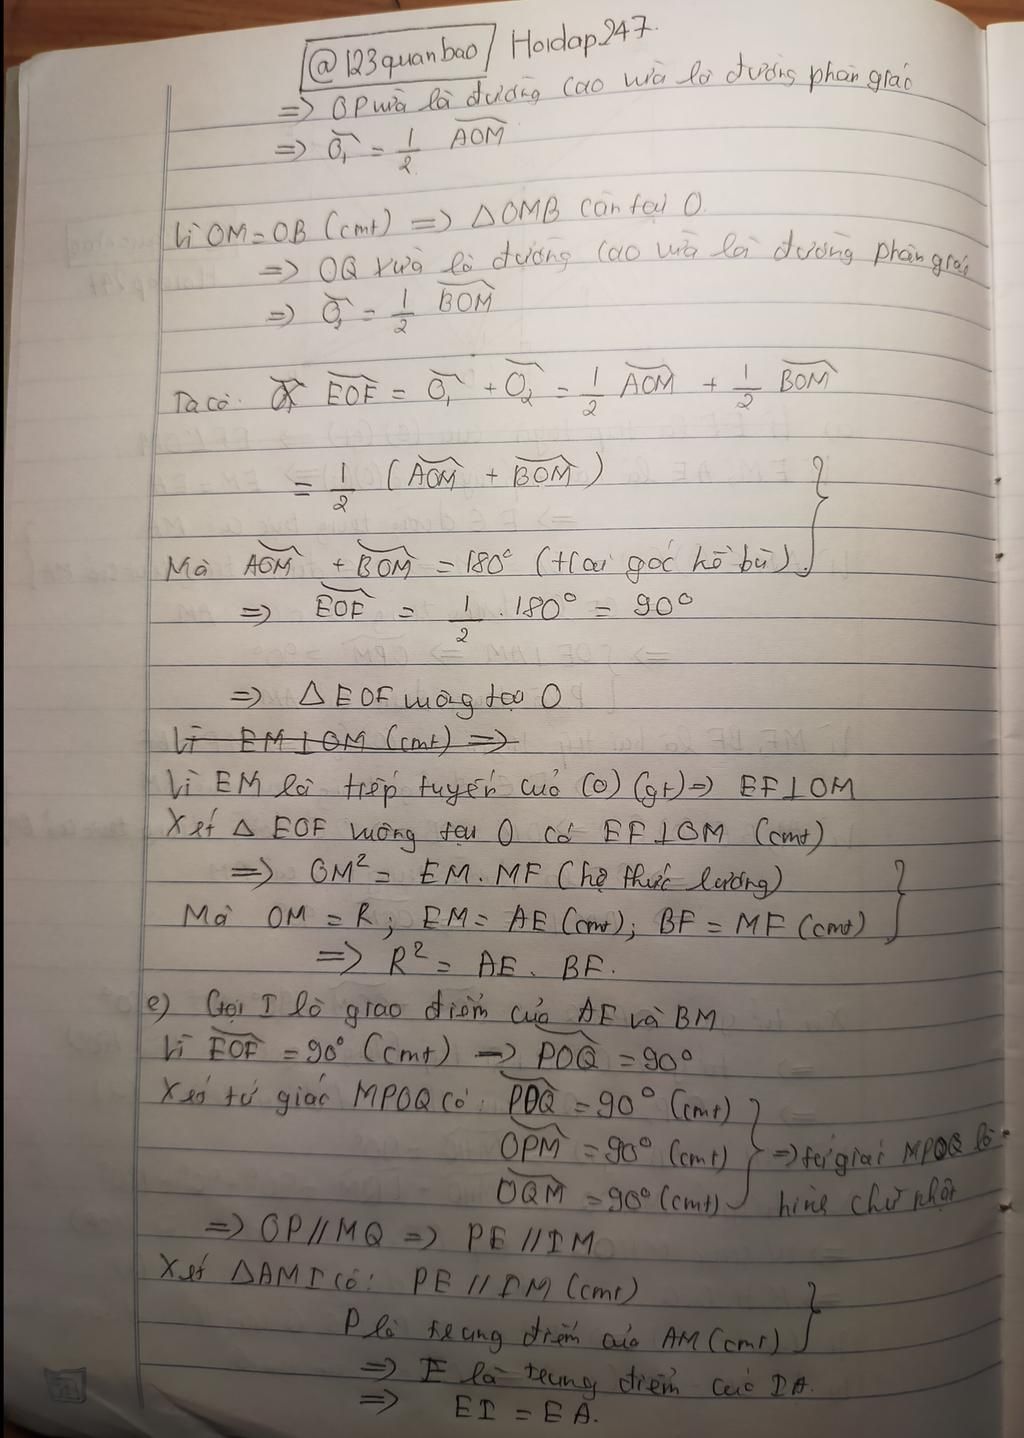 @123quanbao / Hoidap247.
=> OP vừa là đường cao vừa là đường phân giác
=> Ô₁ = 1/2 AOM
Vì OM = OB (cmt) => △OMB cân tại O.
=> OQ vừa là đường cao vừa là đường phân giác
=> Ô₂ = 1/2 BOM
Ta có: EOF = Ô₁ + Ô₂ = 1/2 AOM + 1/2 BOM
= 1/2 (AOM + BOM)
Mà AOM + BOM = 180° (Hai góc kề bù)
=> EOF = 1/2 . 180° = 90°
=> △EOF vuông tại O
Vì EM ⊥ OM (cmt) =>
Vì EM là tiếp tuyến của (O) (gt) => EF ⊥ OM
Xét △ EOF vuông tại O có EF ⊥ OM (cmt)
=> OM² = EM . MF (hệ thức lượng)
Mà OM = R ; EM = AE (cmt); BF = MF (cmt)
=> R² = AE . BF.
e) Gọi I là giao điểm của AE và BM
Vì EOF = 90° (cmt) => POQ = 90°
Xét tứ giác MPOQ có: POQ = 90° (cmt)
OPM = 90° (cmt) => tứ giác MPOQ là
OQM = 90° (cmt) hình chữ nhật
=> OP // MQ => PE // IM
Xét △AMI có: PE // IM (cmt)
P là trung điểm của AM (cmt)
=> E là trung điểm của IA.
=> EI = EA.